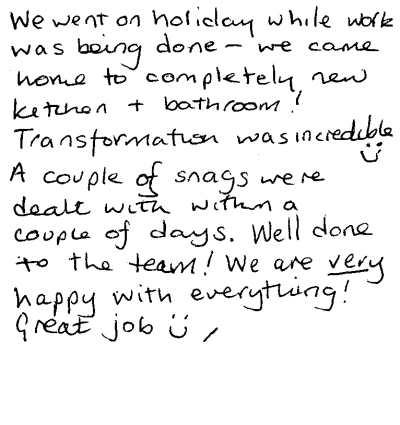 We went on holiday while work
was being done - we came
home to completely new
kitchen + bathroom!
Transformation was incredible
☺
A couple of snags were
dealt with within a
couple of days. Well done
to the team! We are very
happy with everything!
Great job ☺